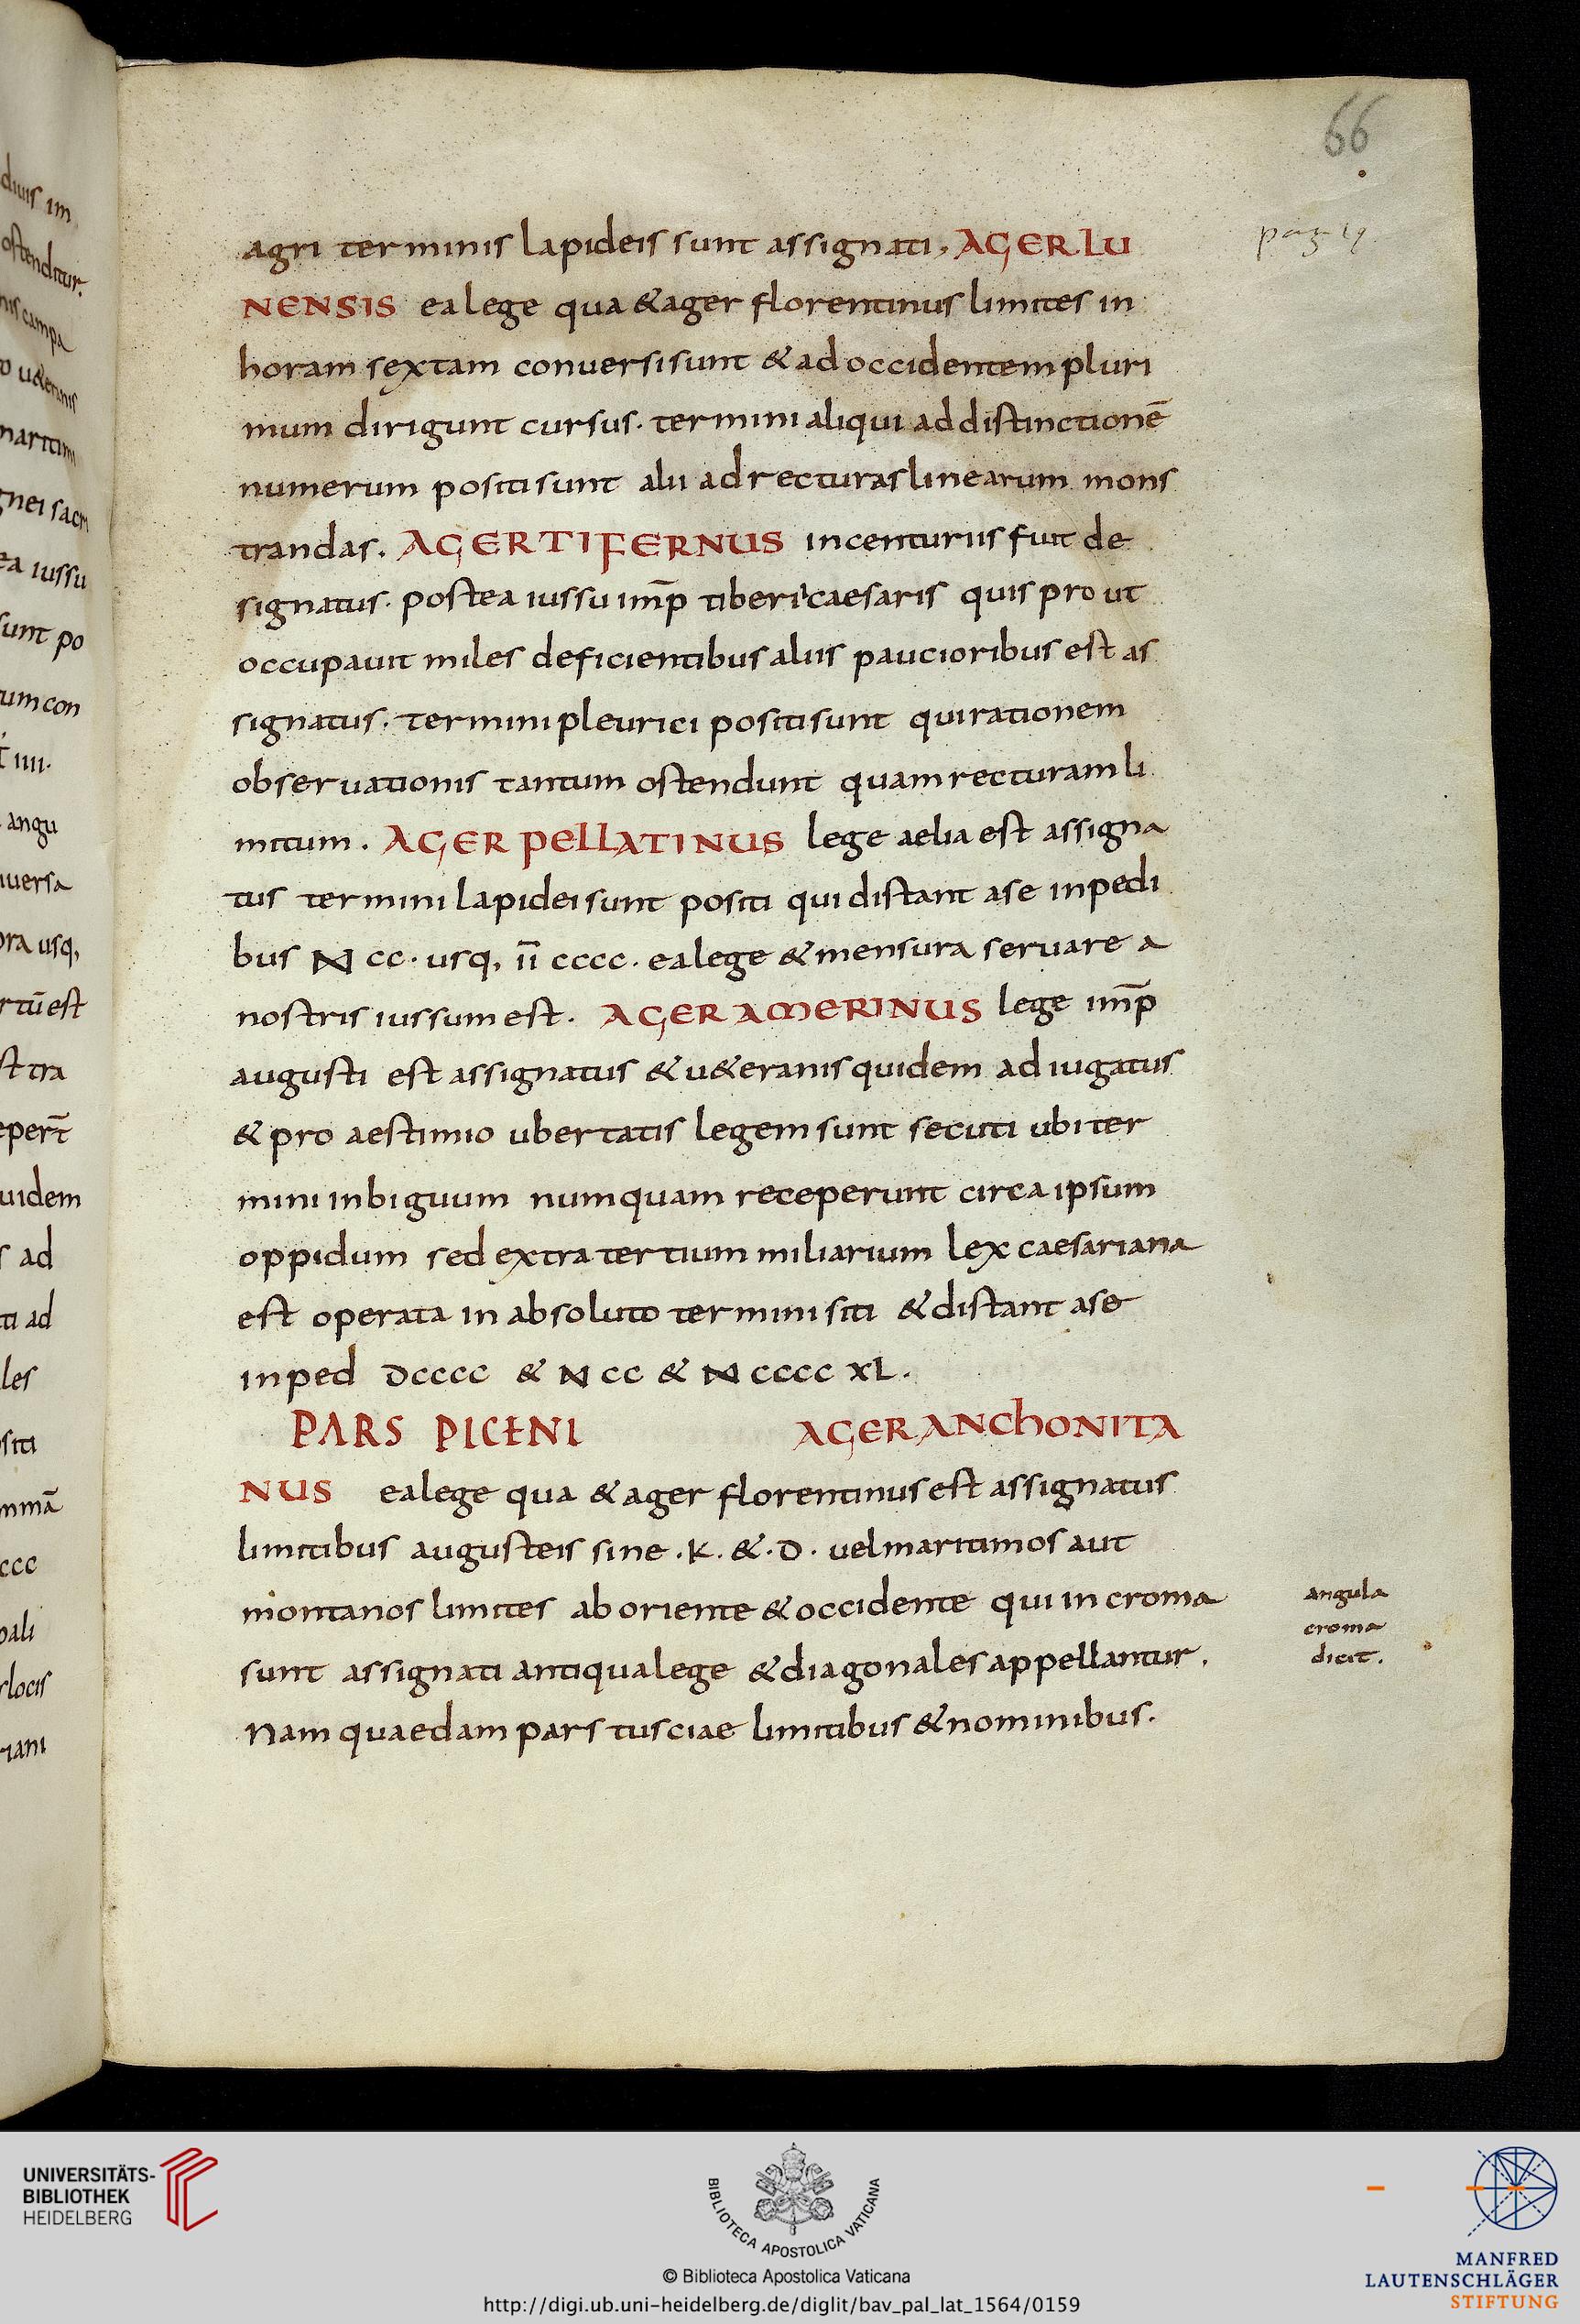 66
agri terminis lapideis sunt assignati, AGER LU
NENSIS ea lege qua & ager florentinus limites in
horam sextam conuersi sunt & ad occidentem pluri
mum dirigunt cursus. termini aliqui ad distinctionē
numerum positi sunt alii ad recturas linearum mons
trandas. AGER TIFERNUS in centuriis fuit de
signatus. postea iussu imp̄ tiberi caesaris quis pro ut
occupauit miles deficientibus aliis paucioribus est as
signatus. termini pleurici positi sunt qui rationem
obseruationis tantum ostendunt quam recturam li
mitum. AGER PELLATINUS lege aelia est assigna
tus termini lapidei sunt positi qui distant a se in pedi
bus N CC. usq, īī cccc. ea lege & mensura seruare a
nostris iussum est. AGER AMERINUS lege imp̄
augusti est assignatus & u&eranis quidem adiugatus
& pro aestimio ubertatis legem sunt secuti ubi ter
mini inbiguum numquam receperunt circa ipsum
oppidum sed extra tertium miliarium lex caesariana
est operata in absoluto termini siti & distant a se
in ped DCCCC & N CC & N CCCC XL.
PARS PICENI AGER ANCHONITA
NUS ea lege qua & ager florentinus est assignatus
limitibus augusteis sine .K. &. D. uel maritimos aut
montanos limites ab oriente & occidente qui in croma
sunt assignati antiqua lege & diagonales appellantur.
Nam quaedam pars tusciae limitibus & nominibus.
angula
croma
dicit.
diuis im
ostenditur.
nis campa
o u&eranis
maritim
gnei sacri
ea iussu
sunt po
tum con
IIII.
angu
uersa
ora usq,
rtū est
st tra
epert̄
uidem
s ad
ti ad
les
siti
mmā
ccc
pali
r locis
riani
UNIVERSITÄTS-
BIBLIOTHEK
HEIDELBERG
BIBLIOTECA APOSTOLICA VATICANA
© Biblioteca Apostolica Vaticana
http://digi.ub.uni-heidelberg.de/diglit/bav_pal_lat_1564/0159
MANFRED
LAUTENSCHLÄGER
STIFTUNG